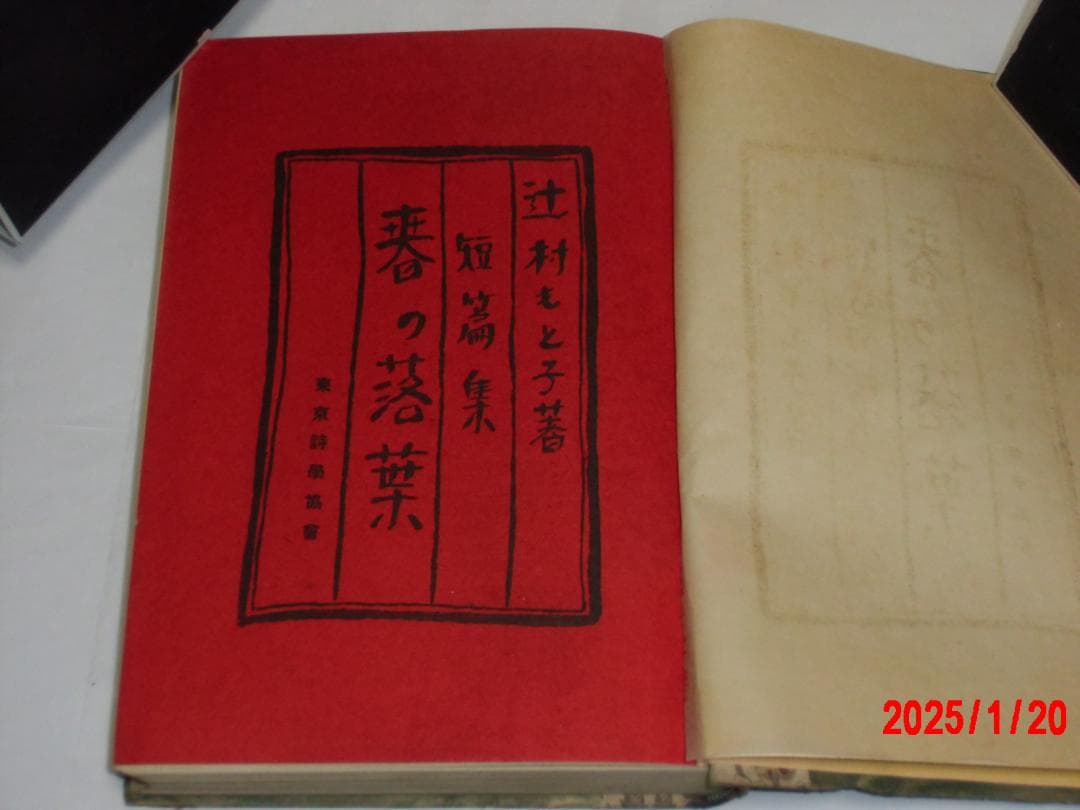 辻村もと子著
短篇集
春の落葉
東京詩學協會
2025/1/20